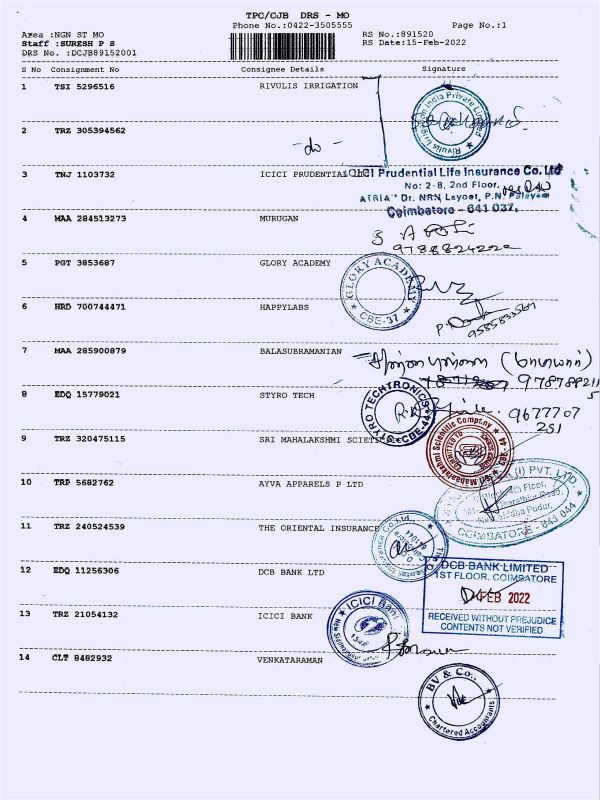 TPC/CJB DRS - MO
Phone No.:0422-3505555
Page No.:1
Area :NGN ST MO
RS No.:891520
Staff :SURESH P S
RS Date:15-Feb-2022
DRS No. :DCJB89152001
S No Consignment No Consignee Details Signature
1 TSI 5296516 RIVULIS IRRIGATION
Rivulis Irrigation India Private Limited
2 TRZ 305394562
-do-
3 TNJ 1103732 ICICI PRUDENTIAL
ICICI Prudential Life Insurance Co. Ltd
No: 2-8, 2nd Floor,
ATRIA" Dr. NRN Layout, P.N. Palayam
Coimbatore - 641 037.
4 MAA 284513273 MURUGAN
9788824222
5 PGT 3853687 GLORY ACADEMY
GLORY ACADEMY
CBE-37
6 HRD 700744471 HAPPYLABS
9585833567
7 MAA 285900879 BALASUBRAMANIAN
978788211
5
8 EDQ 15779021 STYRO TECH
STYRO TECHTRONICS
CBE-44
9677707
251
9 TRZ 320475115 SRI MAHALAKSHMI SCIETIFIC
Mahaalakshmi Scientific Company
10 TRP 5682762 AYVA APPARELS P LTD
(I) PVT. LTD.
COIMBATORE - 641 044
11 TRZ 240524539 THE ORIENTAL INSURANCE
12 EDQ 11256306 DCB BANK LTD
DCB BANK LIMITED
1ST FLOOR, COIMBATORE
FEB 2022
RECEIVED WITHOUT PREJUDICE
CONTENTS NOT VERIFIED
13 TRZ 21054132 ICICI BANK
ICICI Bank
14 CLT 8482932 VENKATARAMAN
BV & Co.,
Chartered Accountants